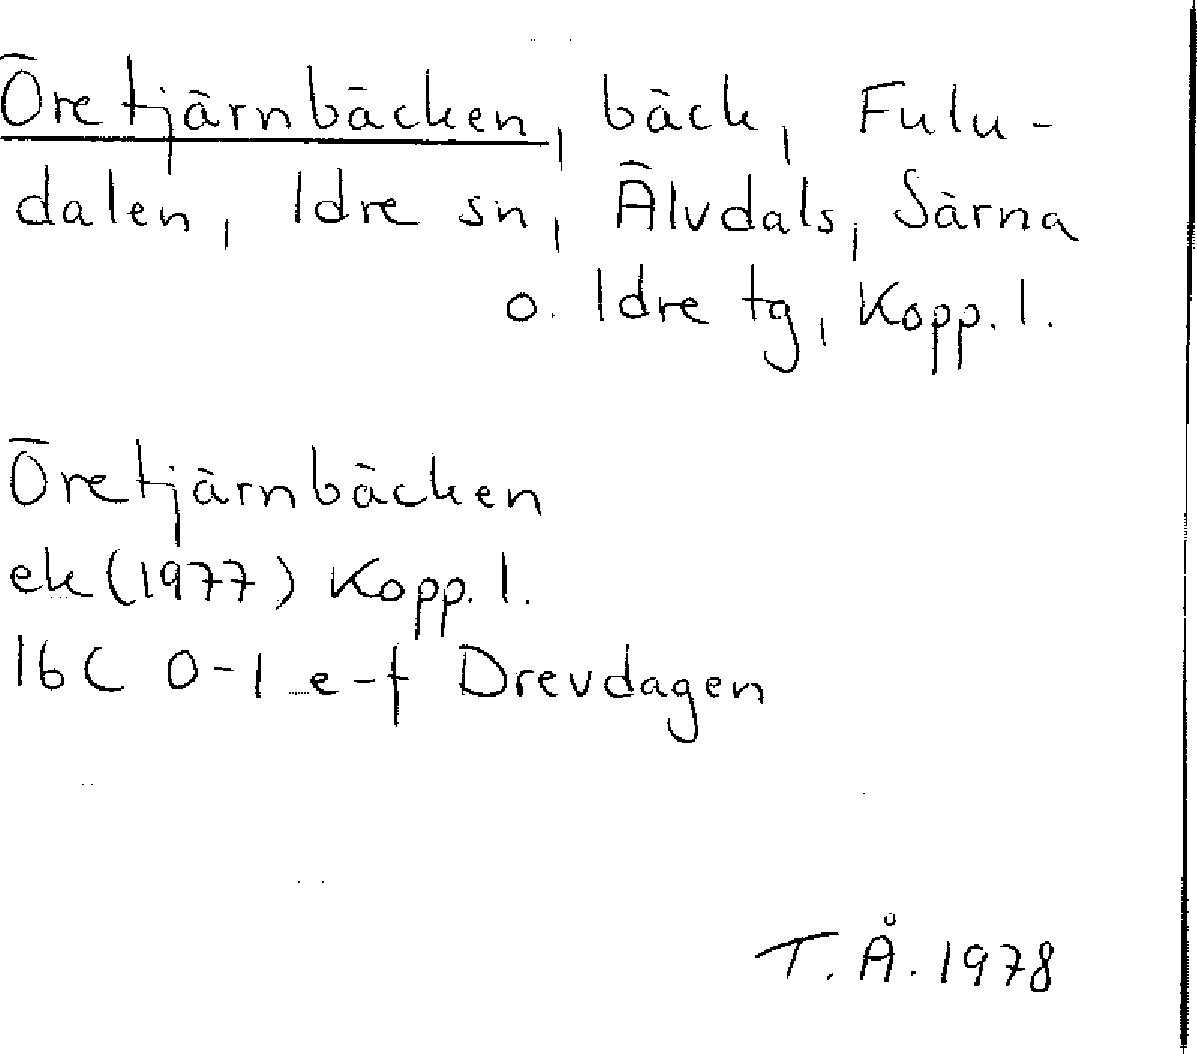 Öretjärnbäcken, bäck, Fulu-
dalen, Idre sn, Älvdals, Särna
o. Idre tg, Kopp. l.
Öretjärnbäcken
ek (1977) Kopp. l.
16C 0-1 e-f Drevdagen
T. Å. 1978